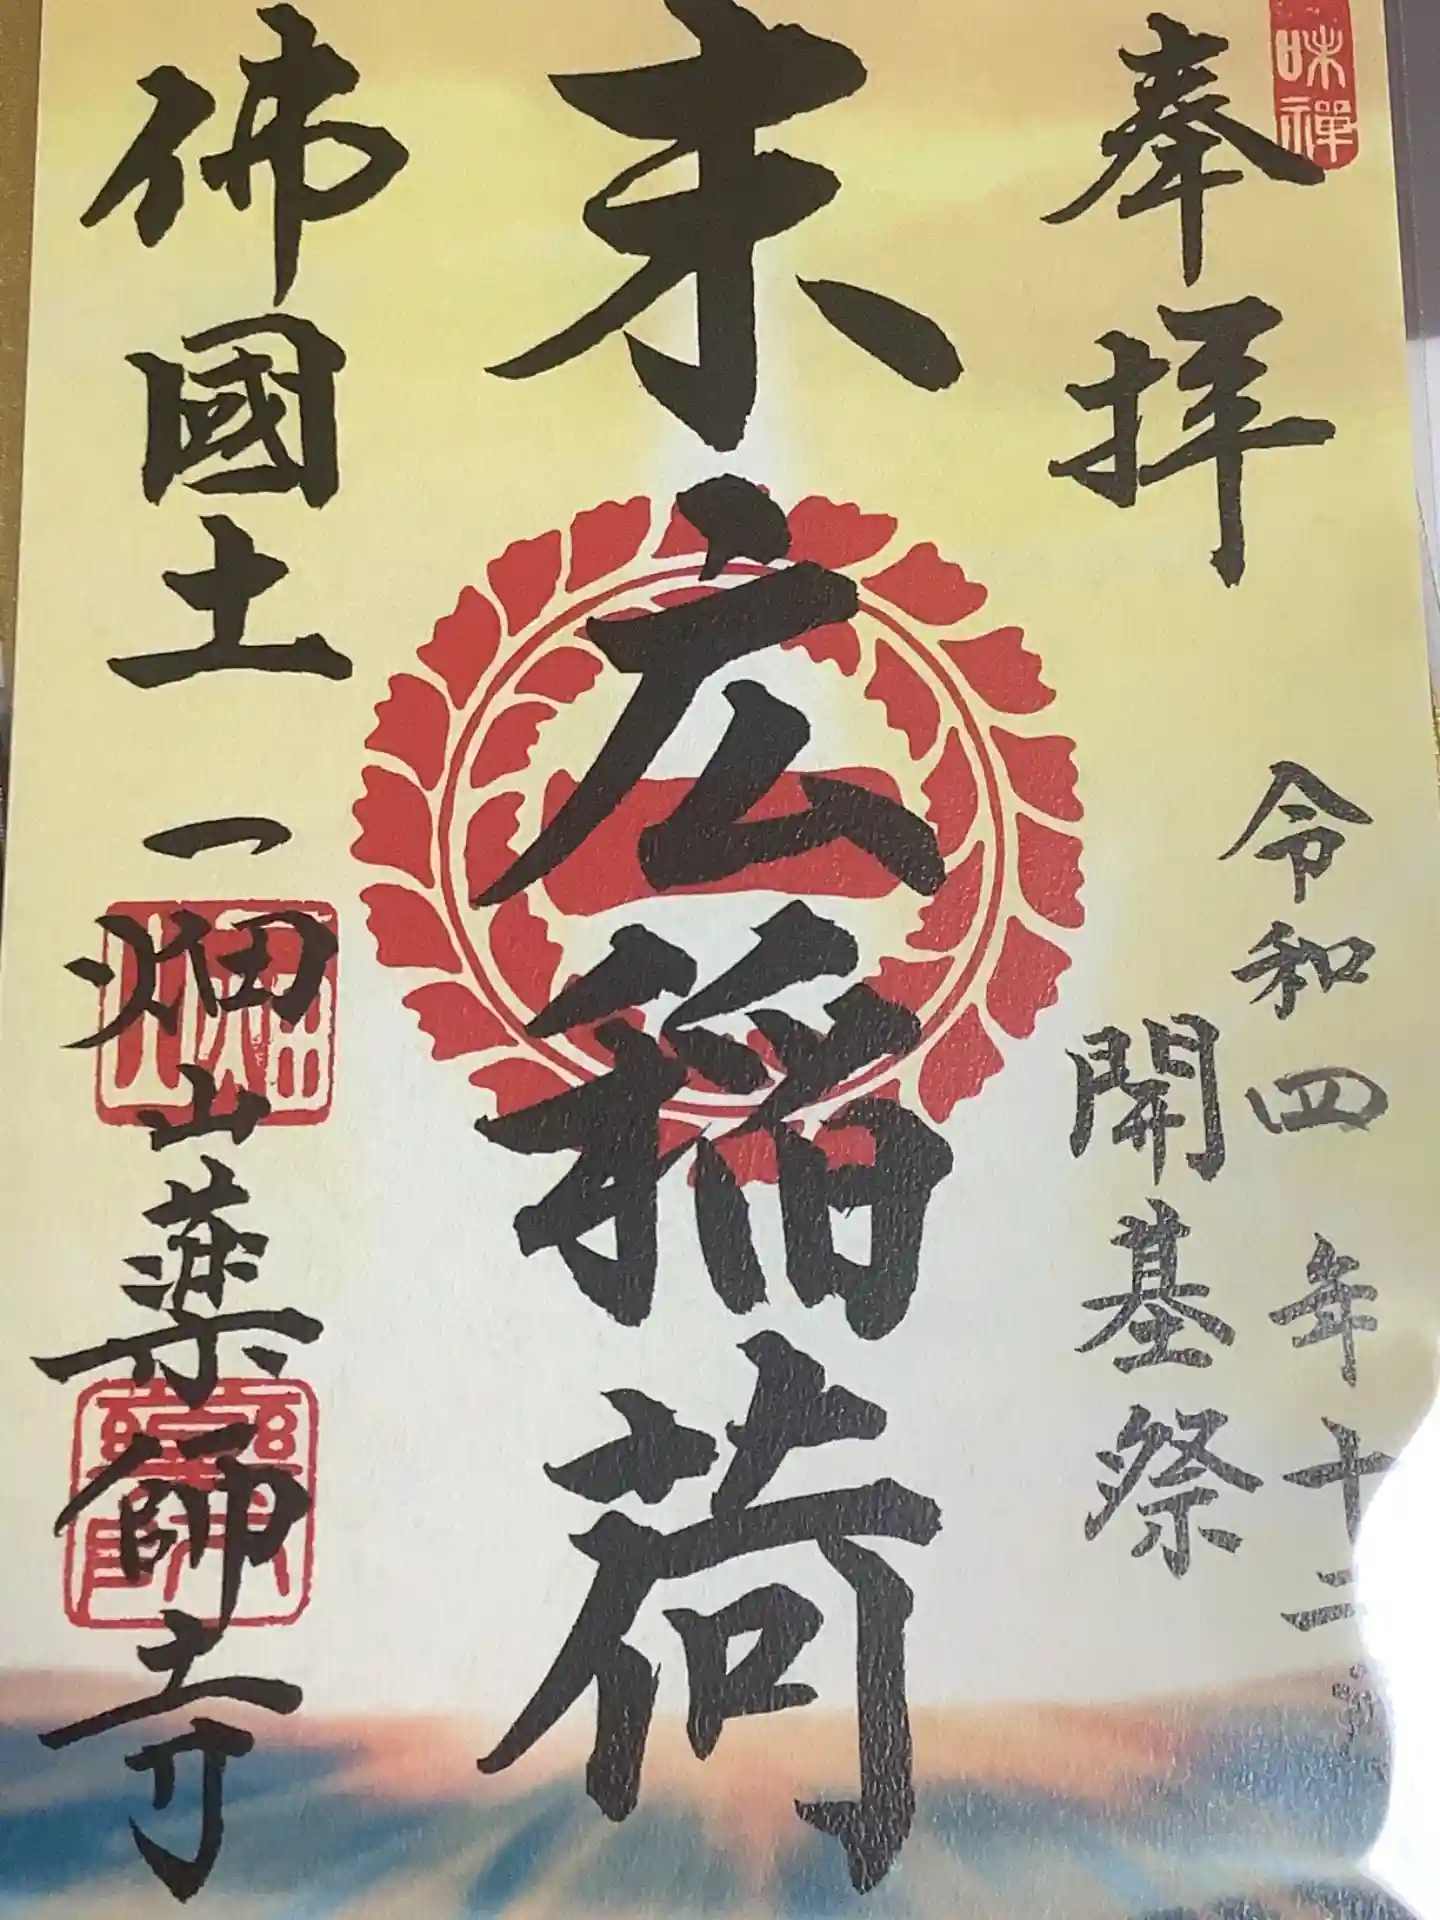 味禅
奉拝
令和四年十二
開基祭
末広稲荷
佛國土 一畑山薬師寺